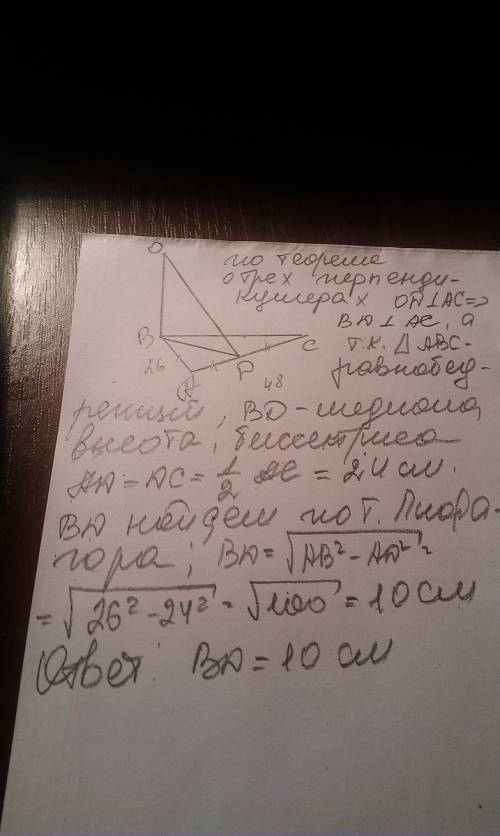 O
по теореме
о трех перпенди-
кулярах OД⊥AC=>
B
C
BД⊥AC, а
26
A
P
48
т.к. △ABC-
равнобед-
ренный, BD-медиана,
высота, биссектриса
AД=ДC=1/2 AC=24 см.
BД найдем по т. Пифа-
гора; BД=√AB²-AД²=
=√26²-24²=√100=10 см
Ответ: BД=10 см